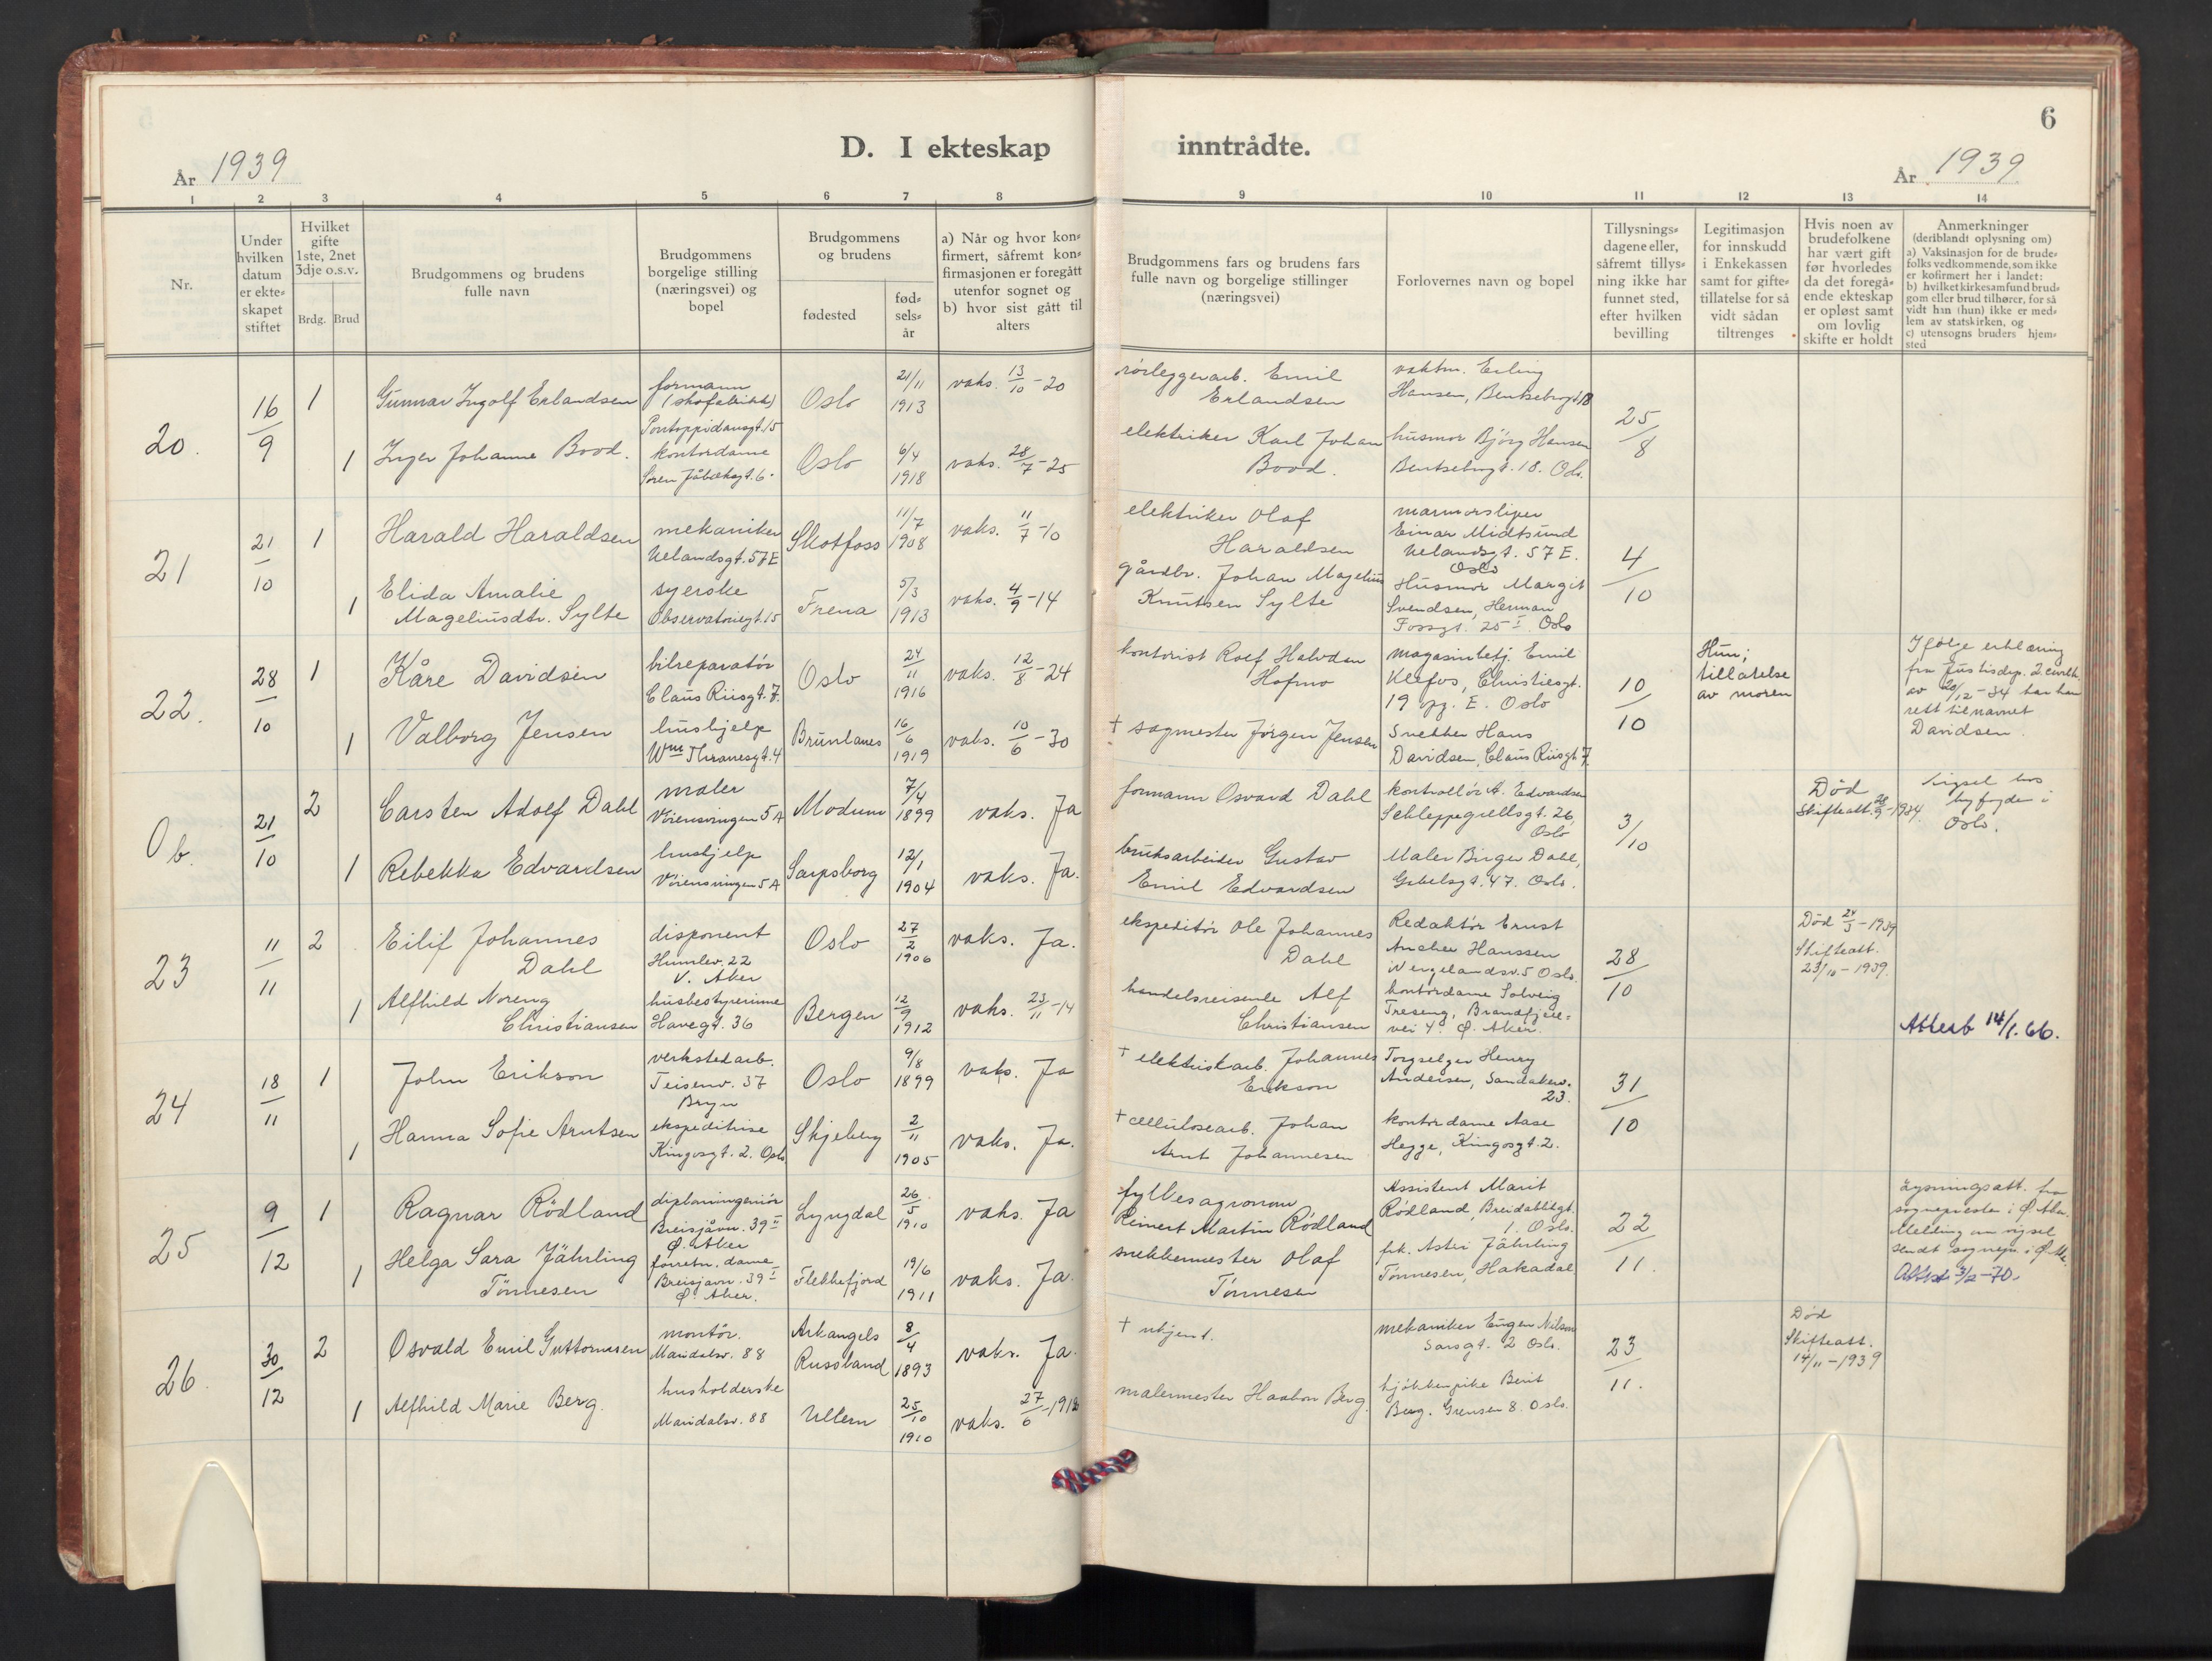 6
D. I ekteskap inntrådte.
År 1939
År 1939
1 2 3 4 5 6 7 8 9 10 11 12 13 14
Nr.
Under hvilken datum er ekteskapet stiftet
Hvilket gifte 1ste, 2net 3dje o.s.v.
Brdg. Brud
Brudgommens og brudens fulle navn
Brudgommens borgelige stilling (næringsvei) og bopel
Brudgommens og brudens
fødested
fødselsår
a) Når og hvor konfirmert, såfremt konfirmasjonen er foregått utenfor sognet og
b) hvor sist gått til alters
Brudgommens fars og brudens fars fulle navn og borgelige stillinger (næringsvei)
Forlovernes navn og bopel
Tillysningsdagene eller, såfremt tillysning ikke har funnet sted, efter hvilken bevilling
Legitimasjon for innskudd i Enkekassen samt for giftetillatelse for så vidt sådan tiltrenges
Hvis noen av brudefolkene har vært gift før hvorledes da det foregående ekteskap er opløst samt om lovlig skifte er holdt
Anmerkninger
(deriblandt oplysning om)
a) Vaksinasjon for de brudefolks vedkommende, som ikke er kofirmert her i landet:
b) hvilket kirkesamfund brudgom eller brud tilhører, for så vidt han (hun) ikke er medlem av statskirken, og
c) utensogns bruders hjemsted
20. 16/9 1 Gunnar Ingolf Erlandsen
formann (skofabrikk) Pontoppidansgt. 15
Oslo 21/11 1913 vaks. 13/10 - 20
rørleggerarb. Emil Erlandsen
vaktm. Erling Hansen, Bentsebrogt. 18
25/8
1 Inger Johanne Bood.
kontordame Søren Jåbæksgt. 6.
Oslo 6/4 1918 vaks. 28/7 - 25
elektriker Karl Johan Bood.
husmor Bjørg Hansen Bentsebrogt. 18. Oslo.
21 21/10 1 Harald Haraldsen
mekaniker Uelandsgt. 57 E
Skotfoss 11/7 1908 vaks. 11/7 - 10
elektriker Olaf Haraldsen
marmorsliper Einar Midtsund Uelandsgt. 57 E. Oslo
4/10
1 Elida Amalie Mageliusdtr. Sylte
syerske Observatoriegt. 15
Frena 5/3 1913 vaks. 4/9 - 14
gårdbr. Johan Magelius Knutsen Sylte
Husmor Margit Svendsen, Herman Fossgt. 25 I. Oslo
22. 28/10 1 Kåre Davidsen
bilreparatør Claus Riisgt. 7.
Oslo 24/11 1916 vaks. 12/8 - 24
kontorist Rolf Halvdan Hofmo
magasinbetj. Emil Klefos, Christiesgt. 19 opg. E. Oslo
10/10
Hun; tillatelse av moren
Ifølge erklæring fra Justisdep. 2. civilk. av 20/12 - 34 har han rett til navnet Davidsen.
1 Valborg Jensen
hushjelp Wm Thranesgt. 4
Brunlanes 16/6 1919 vaks. 10/6 - 30
† sagmester Jørgen Jensen
Snekker Hans Davidsen, Claus Riisgt. 7
0b. 21/10 2 Carsten Adolf Dahl
maler Vøiensvingen 5 A
Modum 7/4 1899 vaks. Ja
formann Osvard Dahl
kontrollør A. Edvardsen Schleppegrellsgt. 26, Oslo
3/10
Død Skifteatt. 28/9 - 1934.
Vigsel hos byfogden i Oslo.
1 Rebekka Edvardsen
hushjelp Vøiensvingen 5 A
Sarpsborg 12/1 1904 vaks. Ja.
bruksarbeider Gustav Emil Edvardsen
Maler Birger Dahl, Gabelsgt. 47. Oslo.
23 11/11 2 Eilif Johannes Dahl
disponent Humlev. 22 V. Aker
Oslo 27/2 1906 vaks. Ja.
ekspeditør Ole Johannes Dahl
Redaktør Ernst Ancher Hanssen Wergelandsv. 5 Oslo.
28/10
Død 24/3 - 1939 Skifteatt. 23/10 - 1939.
1 Alfhild Noreng Christiansen
husbestyrerinne Havegt. 36
Bergen 12/9 1912 vaks. 23/11 - 14
handelsreisende Alf Christiansen
kontordame Solveig Treseng, Brandfjellvei 4. Ø. Aker.
Attest 14/1. 66.
24 18/11 1 John Erikson
verkstedarb. Teisenv. 37 Bryn
Oslo 9/8 1899 vaks. Ja
† elektrisk arb. Johannes Erikson
Torgselger Henry Andersen, Sandakerv. 23.
31/10
1 Hanna Sofie Arntsen
ekspeditrise Kingosgt. 2. Oslo
Skjeberg 2/11 1905 vaks. Ja.
† cellulosearb. Johan Arnt Johannesen
kontordame Aase Hegge, Kingosgt. 2.
25 9/12 1 Ragnar Rødland
diplomingeniør Breisjåvn. 39 II Ø. Aker
Lyngdal 26/5 1910 vaks. Ja
fylkesagronom Reinert Martin Rødland
Assistent Marit Rødland, Breidablikgt. 1. Oslo.
22/11.
Lysningsatt. fra sognepresten i Ø. Aker. Melding om vigsel sendt sognepr. i Ø. Ak.
Attest 3/2 - 70.
1 Helga Sara Jährling Tønnesen
forretn. dame Breisjåvn. 39 I Ø. Aker.
Flekkefjord 19/6 1911 vaks. Ja.
snekkermester Olaf Tønnesen
frk. Astri Jährling Tønnesen, Hakadal
26. 30/12 2 Osvald Emil Guttormsen
montør. Maridalsv. 88
Arkangels Russland 8/4 1893 vaks. Ja.
† ukjent.
mekaniker Eugen Nilsen Sarsgt. 2 Oslo.
23/11.
Død Skifteatt. 14/11 - 1939
1 Alfhild Marie Berg.
husholderske Maridalsv. 88
Ullern 25/10 1910 vaks. 27/6 - 1912
malermester Haakon Berg.
kjøkkenpike Berit Berg. Grensen 8. Oslo.